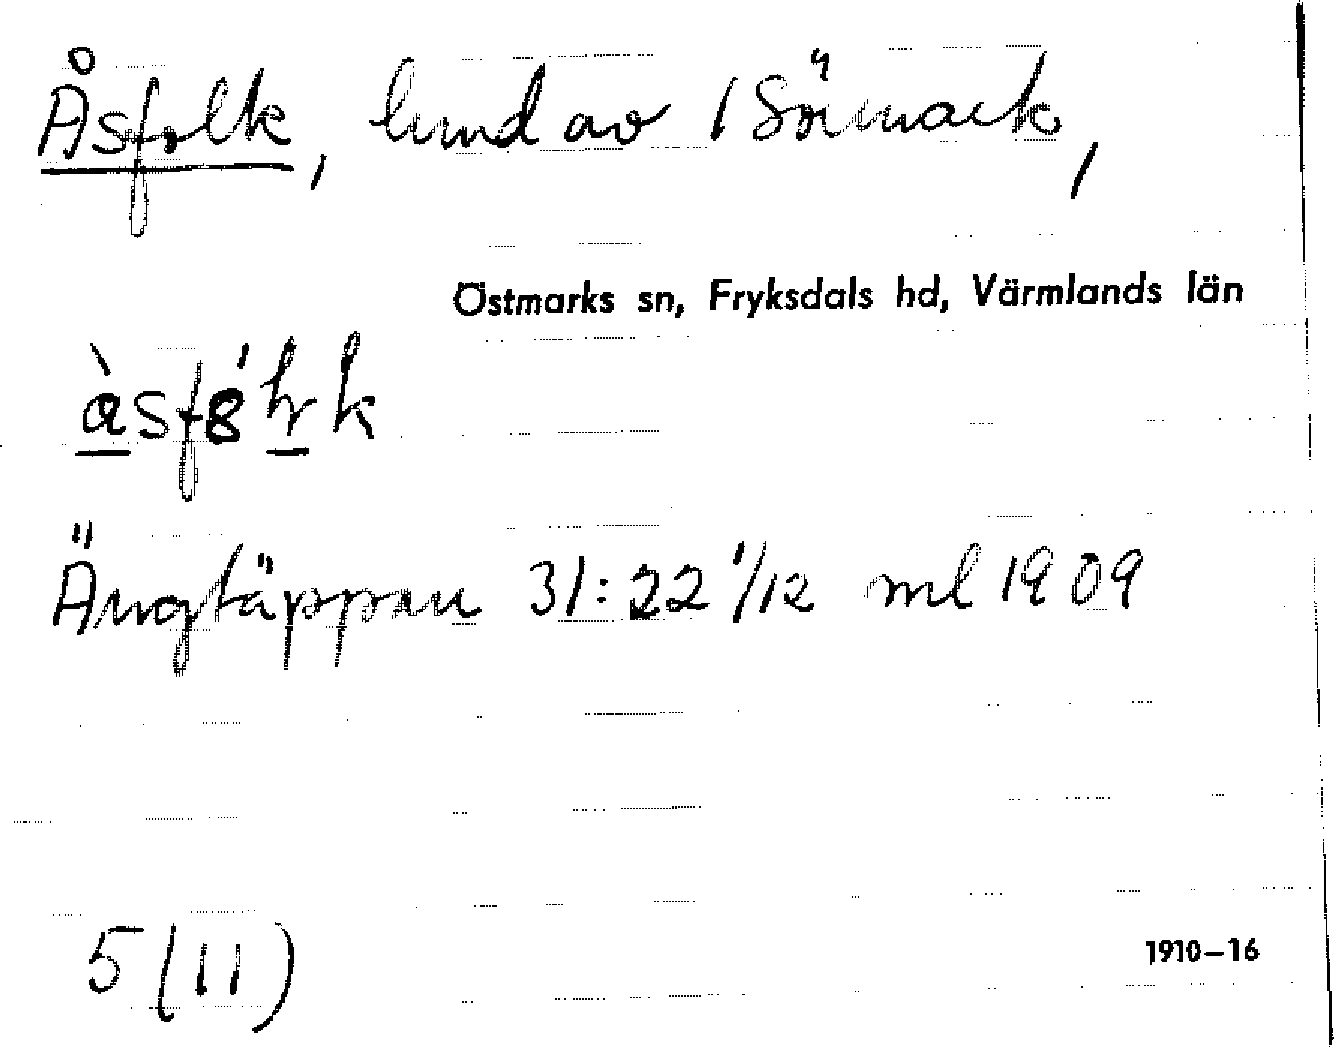 Åsfolk, lund av 1 Sörmark,
Östmarks sn, Fryksdals hd, Värmlands län
Ängtäppan 31:22 1/12 ml 1909
5 (11)
1910–16